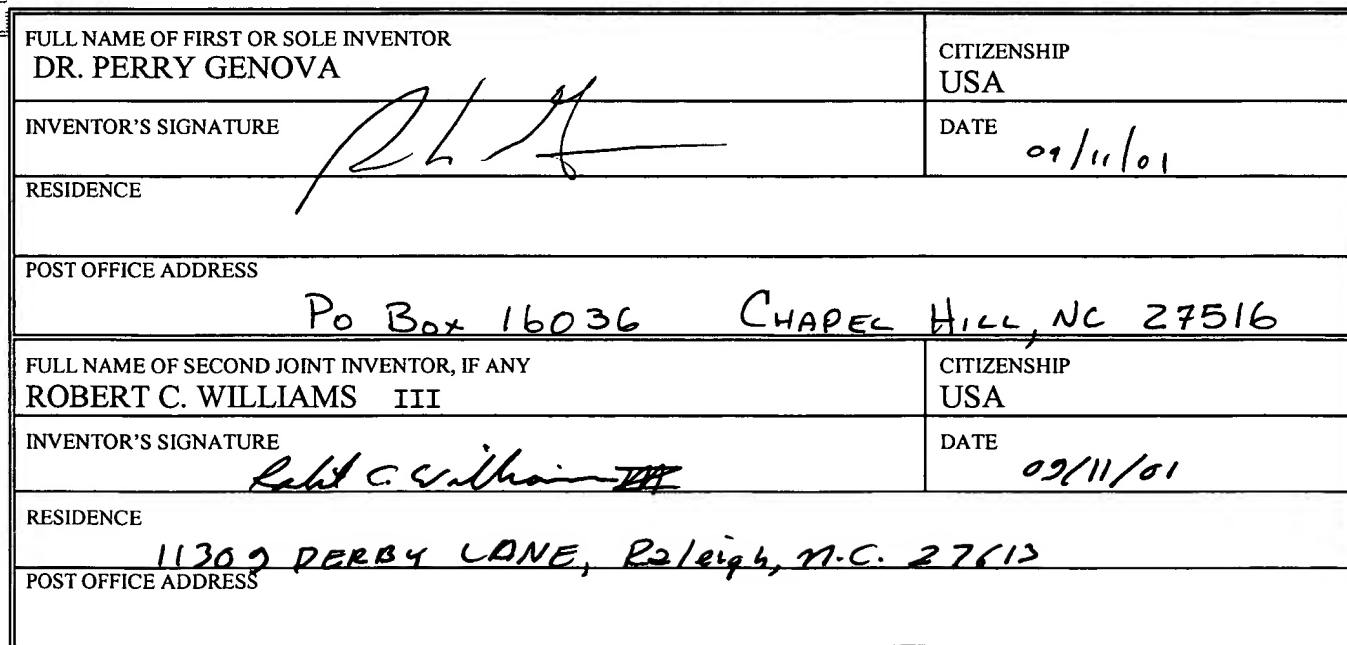 FULL NAME OF FIRST OR SOLE INVENTOR
DR. PERRY GENOVA
CITIZENSHIP
USA
INVENTOR'S SIGNATURE
DATE 09/11/01
RESIDENCE
POST OFFICE ADDRESS
Po Box 16036 CHAPEL HILL, NC 27516
FULL NAME OF SECOND JOINT INVENTOR, IF ANY
ROBERT C. WILLIAMS III
CITIZENSHIP
USA
INVENTOR'S SIGNATURE Robert C. Williams III
DATE 09/11/01
RESIDENCE
11309 DERBY LANE, Raleigh, N.C. 27613
POST OFFICE ADDRESS